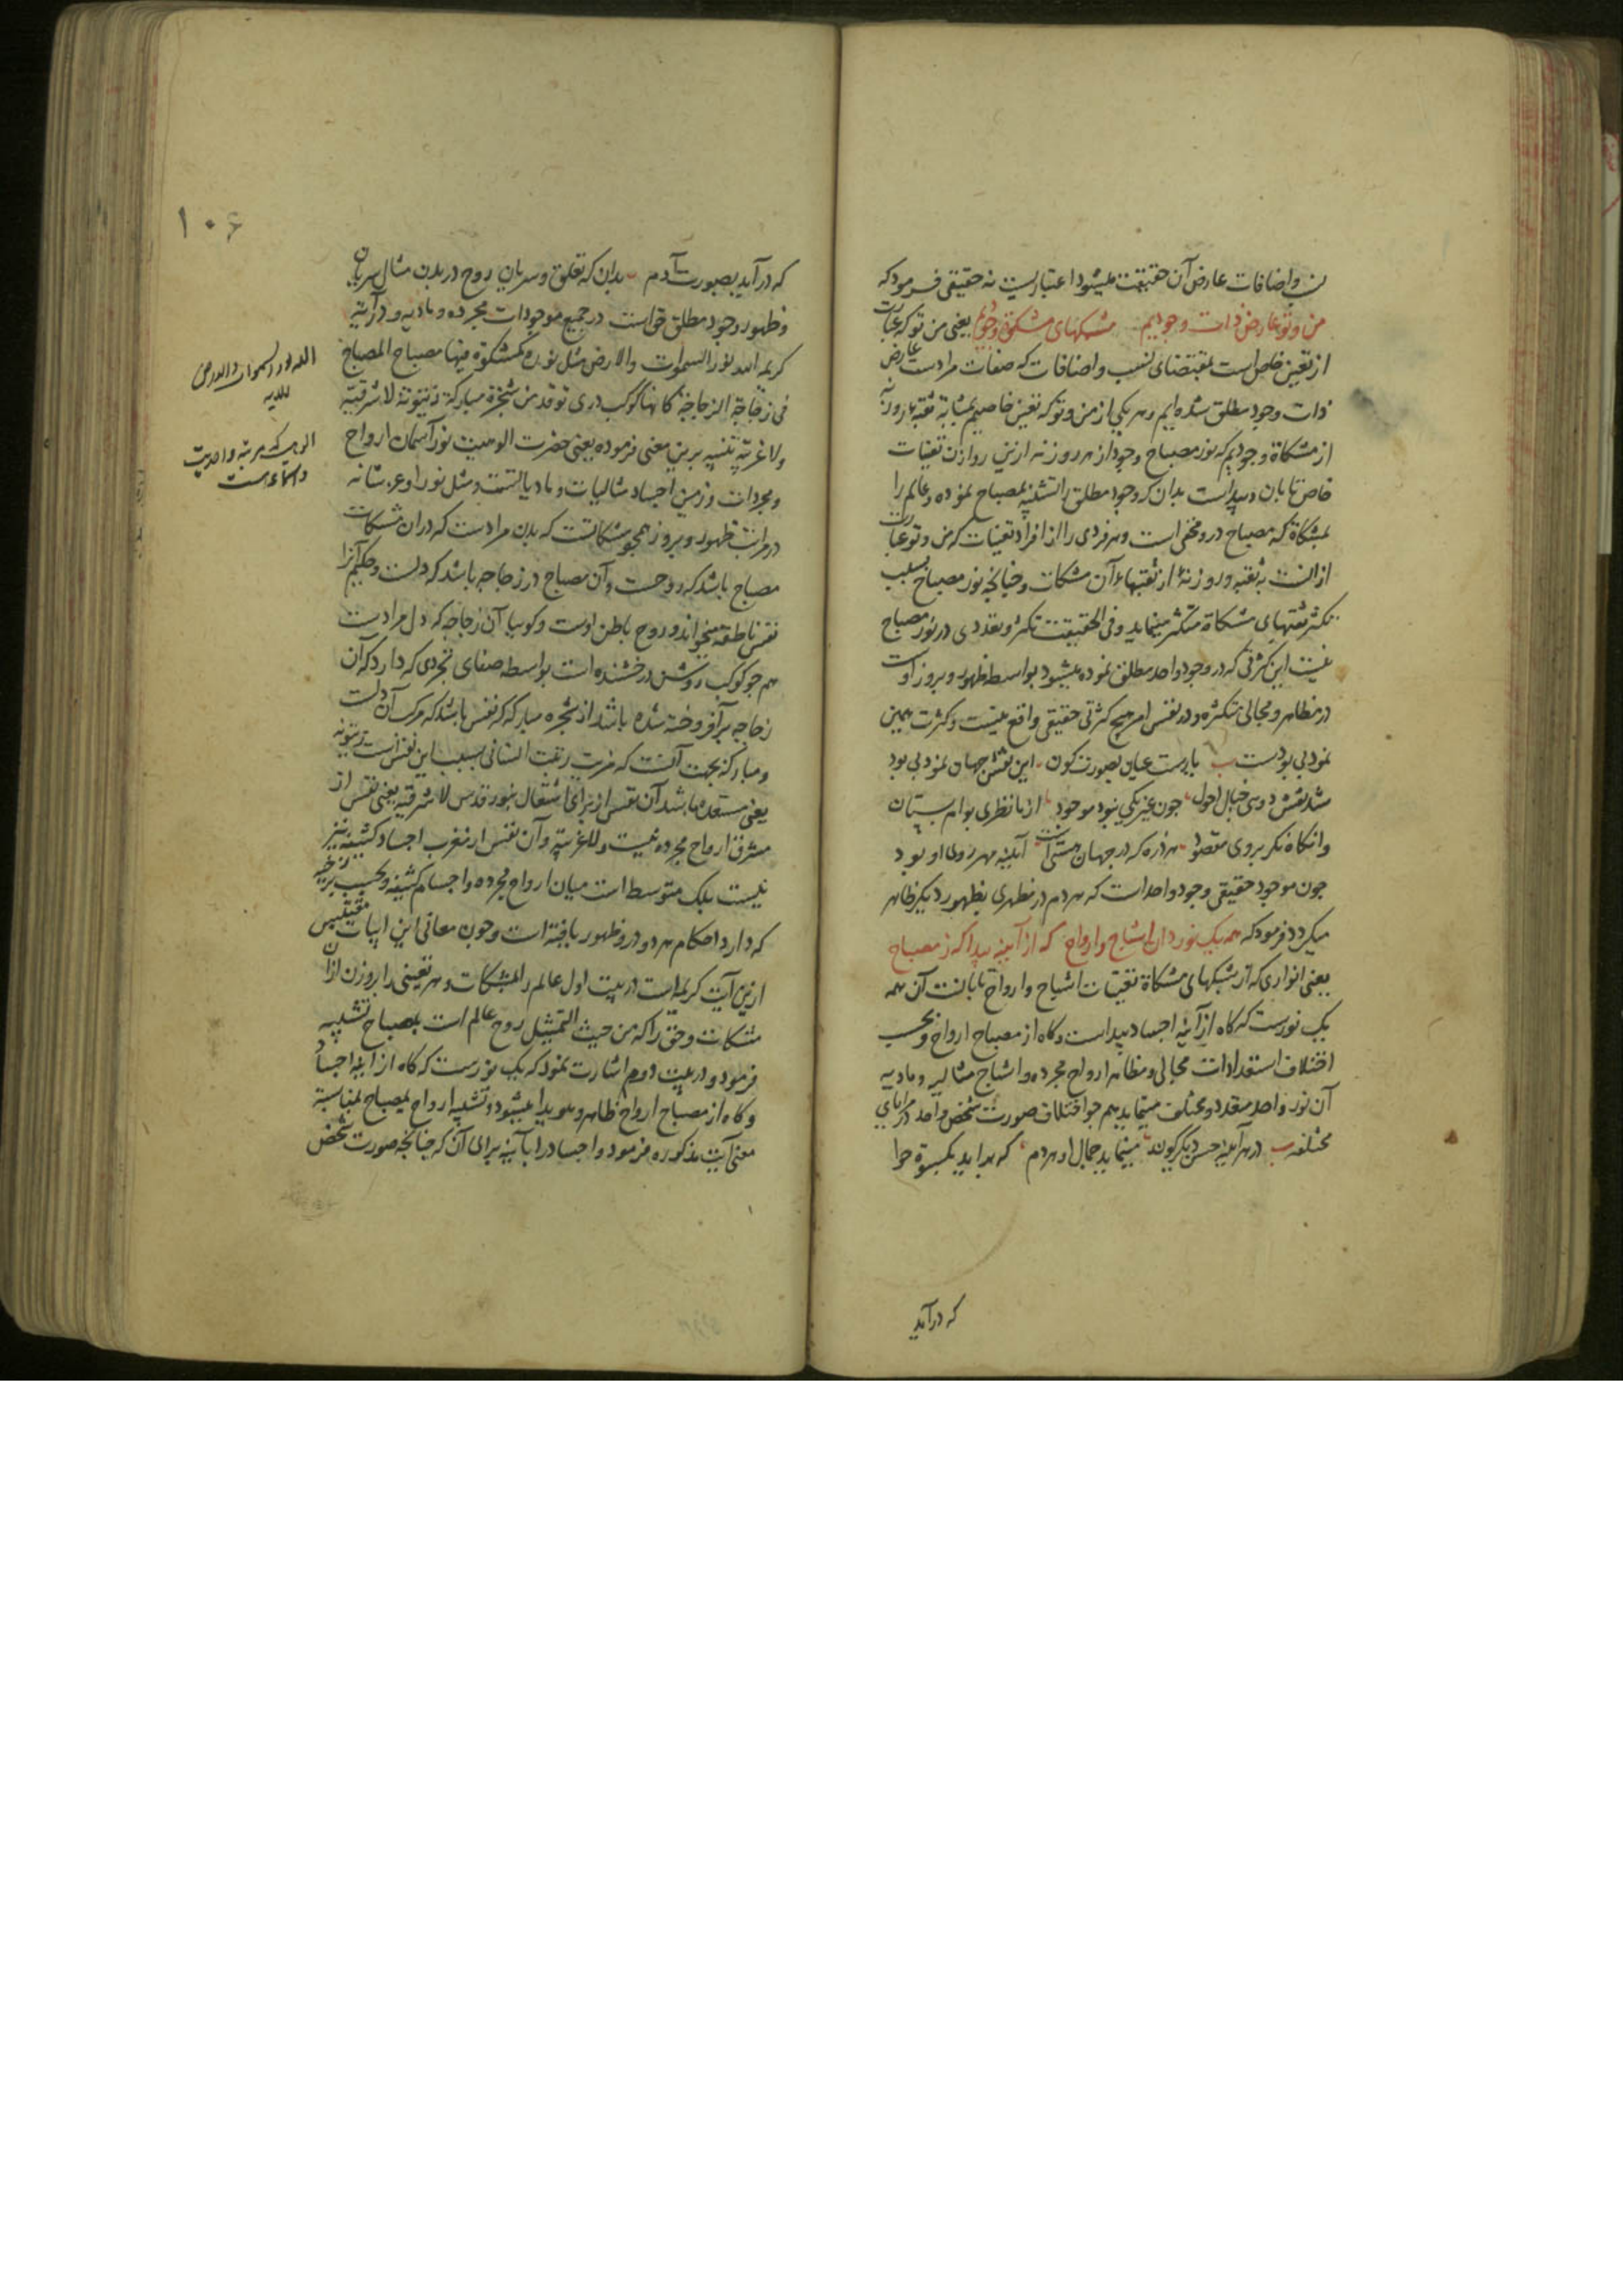 و اضافات عارض آن حقیقت میشود اعتباریست نه حقیقی فرمود که
من و تو عارض ذات وجودیم مشبکهای مشکوة وجودیم یعنی من و تو که عبارت
از تعین خاص است بمقتضای نسب و اضافات که صفات مرادست عارض
ذات وجود مطلق شده ایم و هر یکی از من و تو که تعین خاصیم بمثابه ثقبه و روزنه
از مشکاة وجودیم که نور مصباح وجود از هر روزنه ازین روازن تعینات
خاص تابان و پیداست بدان که وجود مطلق را تشبیه بمصباح نموده و عالم را
بمشکاة که مصباح درو مخفی است و هر فردی را از افراد تعینات که من و تو عبارت
از آنست به ثقبه و روزنهٔ از ثقبهاء آن مشکات و چنانچه نور مصباح بسبب
تکثر ثقبهای مشکاة متکثر مینماید و فی الحقیقت تکثر و تعددی در نور مصباح
نیست این کثرتی که در وجود واحد مطلق نموده میشود بواسطه ظهور و بروز اوست
در مظاهر و مجالی متکثره و در نفس امر هیچ کثرتی حقیقی واقع نیست و کثرت همین
نمود بی بودست یاریست عیان بصورت کون این نقش جهان نمود بی بود
شد نقش دوی خیال احول چون غیر یکی نبود موجود از ما نظری بوام بستان
وانگاه نگر بروی مقصود هر ذره که در جهان هستی است آیینه مهر روی او بود
چون موجود حقیقی وجود واحد است که هر دم در مظهری بظهور دیگر ظاهر
میگردد فرمود که همه یک نور دان اشباح و ارواح که از آیینه پیدا که ز مصباح
یعنی انواری که از مشبکهای مشکاة تعینات اشباح و ارواح تابانست آن همه
یک نورست که گاه از آینه اجساد پیداست و گاه از مصباح ارواح و بحسب
اختلاف استعدادات مجالی و مظاهر ارواح مجرده و اشباح مثالیه و مادیه
آن نور واحد متعدد و مختلف مینماید همچو اختلاف صورت شخص واحد در مرایای
مختلفه در هر آینه حسن دیگرگون مینماید جمال او هر دم که براید بکسوة حوا
که درآید
۱۰۶
که درآید بصورت آدم بدان که تعلق و سریان روح در بدن مثال سریان
و ظهور وجود مطلق حق است در جمیع موجودات مجرده و مادیه و در آیه
کریمه الله نور السموات والارض مثل نوره کمشکوة فیها مصباح المصباح
فی زجاجة الزجاجة کانها کوکب دری توقد من شجرة مبارکة زیتونة لا شرقیة
ولا غربیة تنبیه برین معنی فرموده یعنی حضرت الوهیت نور آسمان ارواح
و مجردات و زمین اجساد مثالیات و مادیاتست و مثل نور او عز شانه
در مراتب ظهور و بروز همچو مشکاتست که بدن مرادست که در آن مشکات
مصباح باشد که روحست و آن مصباح در زجاجه باشد که دلست و حکیم آنرا
نفس ناطقه میخواند و روح باطن اوست و گوییا آن زجاجه که دل مرادست
همچو کوکب روشن درخشنده است بواسطه صفای تجردی که دارد که آن
زجاجه برافروخته شده باشد از شجره مبارکه که نفس باشد که مرکب آن دلست
و مبارکه بجهت آنست که مزیت رتبت انسانی بسبب این نفس است زیتونه
یعنی مستعده باشد آن نفس از برای اشتعال بنور قدس لا شرقیة یعنی نفس از
مشرق ارواح مجرده نیست ولا غربیة و آن نفس از مغرب اجساد کثیفه نیز
نیست بلک متوسط است میان ارواح مجرده و اجسام کثیفه و بحسب برزخیه
که دارد احکام هر دو درو ظهور یافته است و چون معانی این ابیات مقتبس
ازین آیت کریمه است در بیت اول عالم را بمشکات و هر تعینی را بروزن از آن
مشکات و حق را که من حیث التمثیل روح عالم است بمصباح تشبیه
فرمود و در بیت دوم اشارت نمود که یک نورست که گاه از آینه اجساد
و گاه از مصباح ارواح ظاهر و هویدا میشود و تشبیه ارواح بمصباح بمناسبة
معنی آیت مذکوره فرمود و اجساد را بآینه برای آن که چنانچه صورت شخص
الله نور السموات والارض
الوهیت که مرتبه واحدیت
و اسماءست